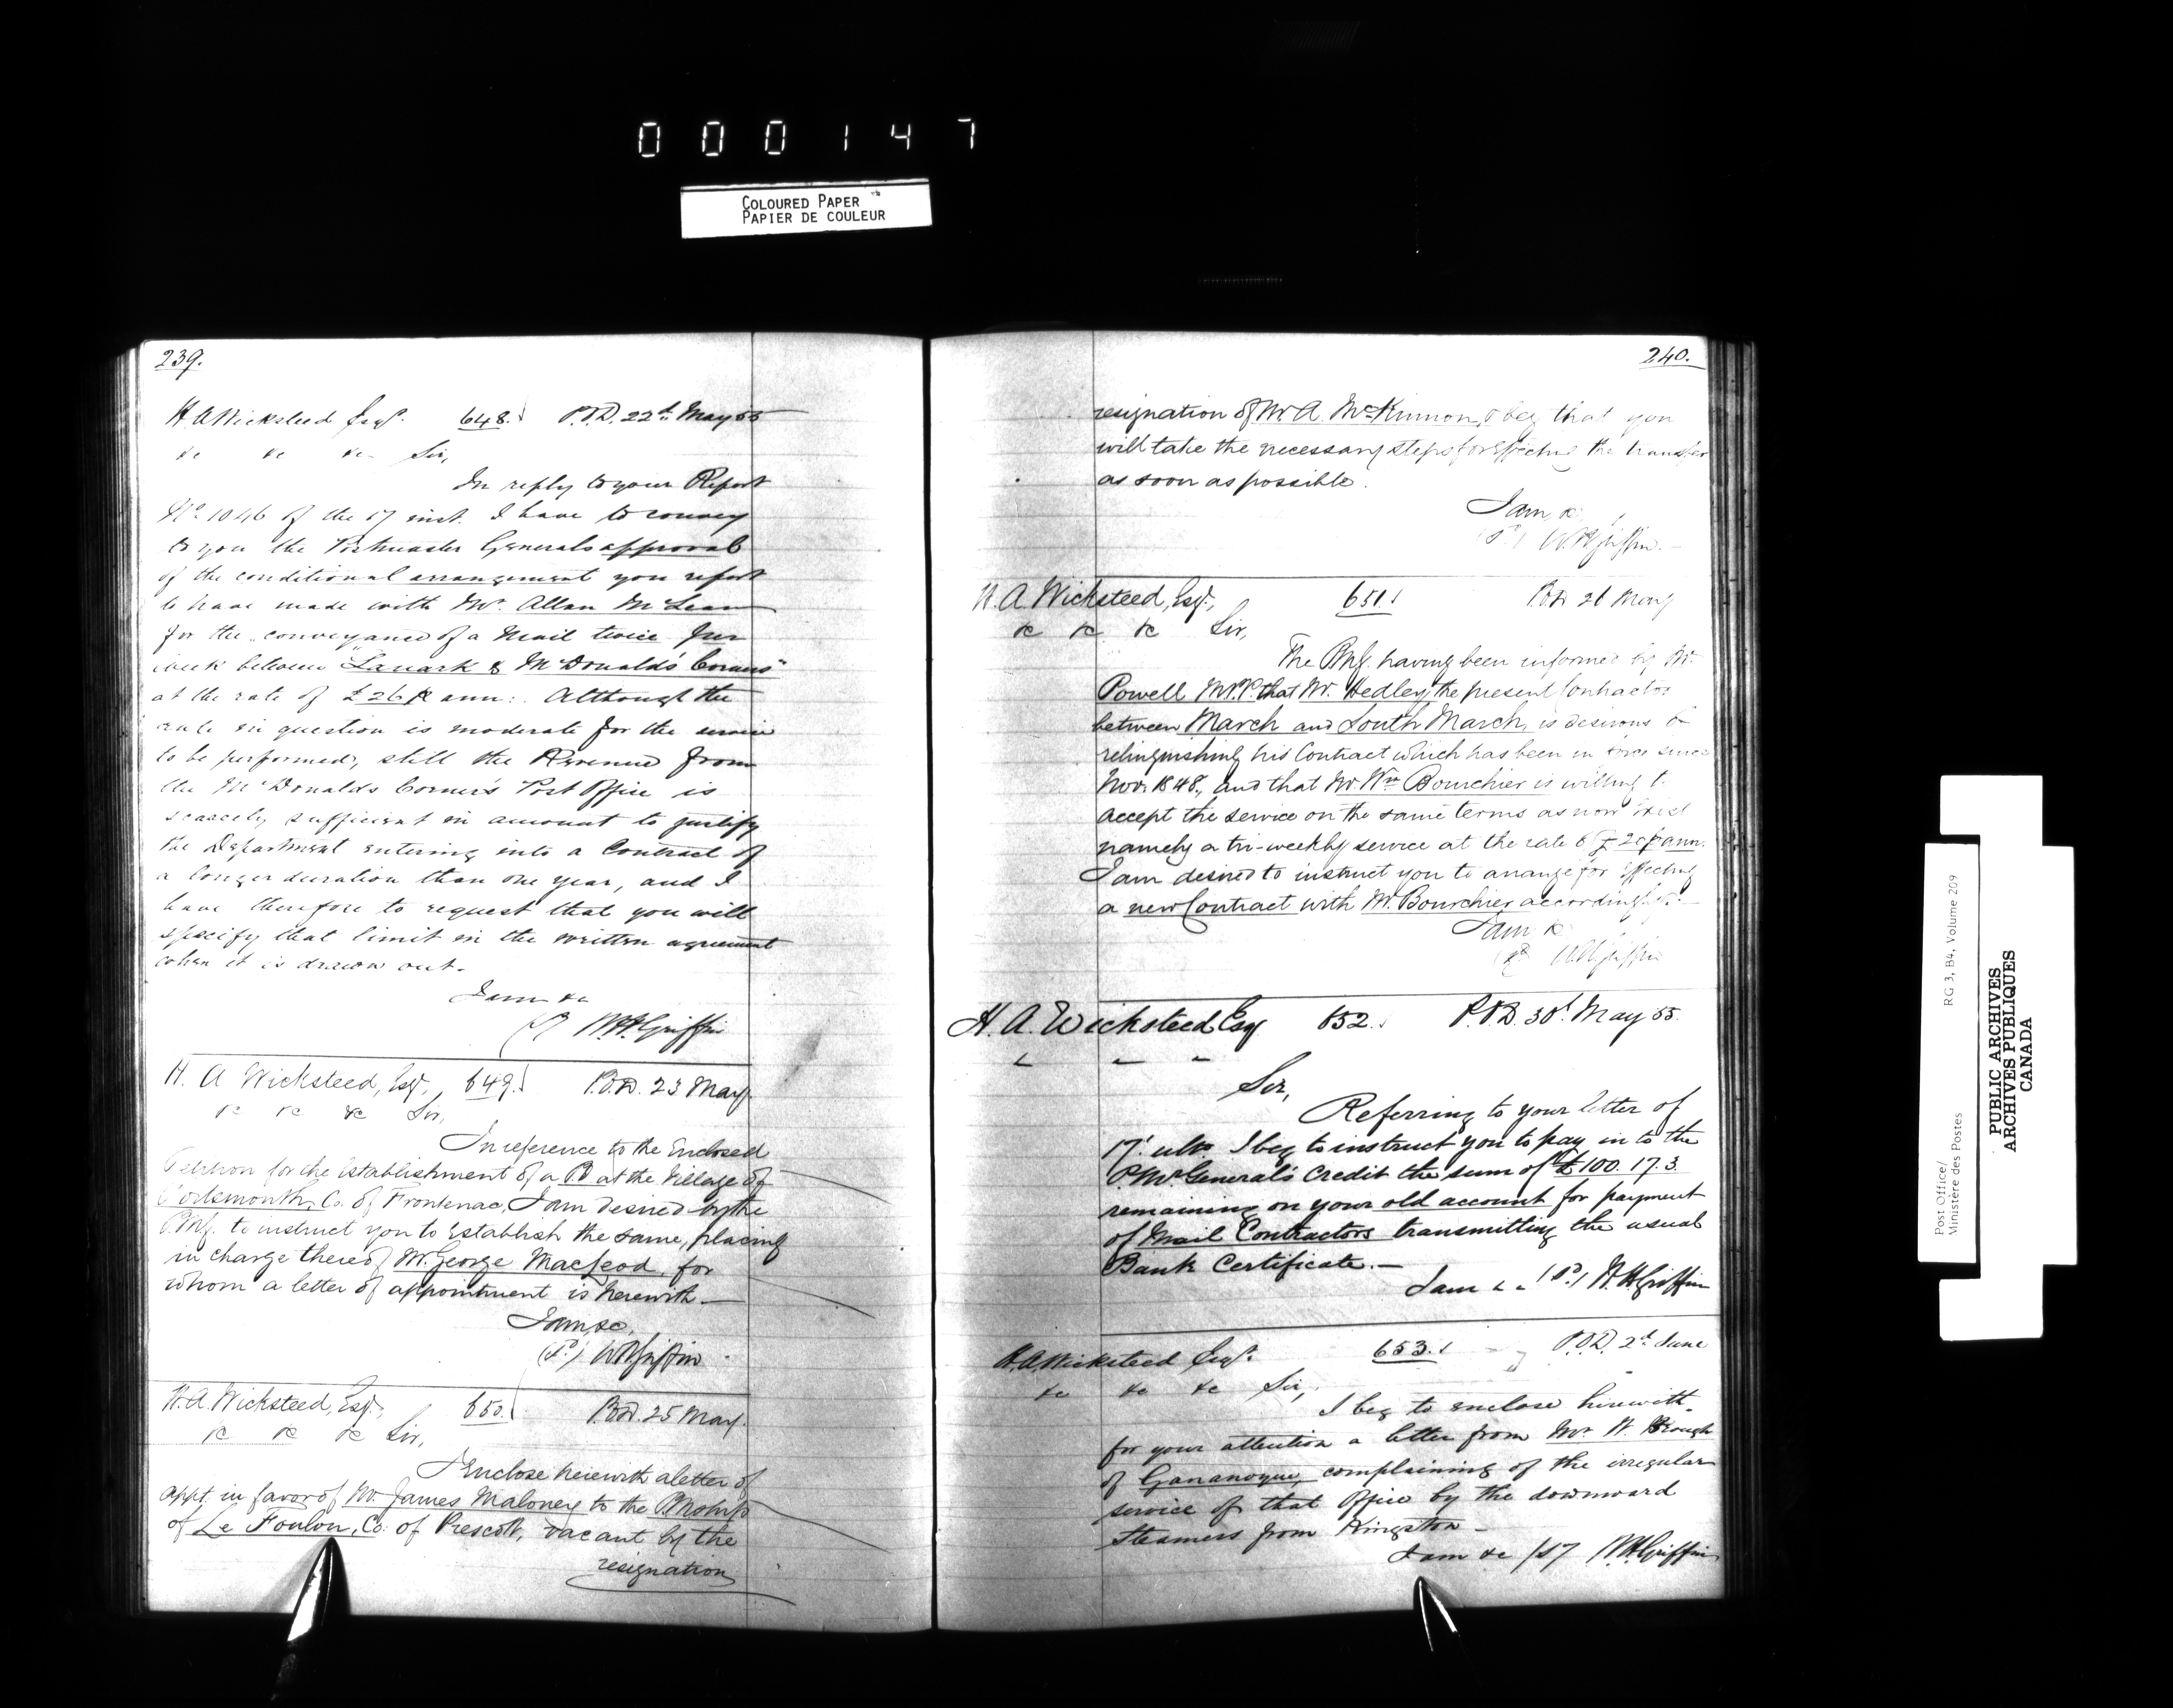 0 0 0 1 4 7
COLOURED PAPER
PAPIER DE COULEUR
239.
H. A Wicksteed Esqr. 648. P.O.D. 22d May 55
&c &c &c Sir,
In reply to your Report
No 1046 of the 17 inst. I have to convey
to you the Postmaster Generals approval
of the conditional arrangement you report
to have made with Mr. Allan McLean
for the conveyance of a Mail twice per
week between "Lanark & McDonald's Corners"
at the rate of £26 p ann: Although the
rate in question is moderate for the service
to be performed, still the Revenue from
the McDonalds Corner's Post Office is
scarcely sufficient in amount to justify
the Department entering into a Contract of
a longer duration than one year, and I
have therefore to request that you will
specify that limit in the written agreement
when it is drawn out.
I am &c
W.H. Griffin
H. A Wicksteed, Esqr., 649. P.O.D. 23 May
&c &c &c Sir,
In reference to the Enclosed
Petition for the Establishment of a P.O at the Village of
Portsmouth, Co. of Frontenac, I am desired by the
P.M.G. to instruct you to Establish the same, placing
in charge thereof Mr. George MacLeod, for
whom a letter of appointment is herewith.—
I am, &c.
W H Griffin
H. A. Wicksteed, Esqr., 650. P.O.D. 25 May.
&c &c &c Sir,
I Enclose herewith a letter of
appt. in favor of Mr. James Maloney to the PMship
of Le Foulon, Co: of Prescott, vacant by the
resignation
240.
resignation of Mr. A. McKinnon, & beg that you
will take the necessary steps for Effecting the transfer
as soon as possible.
I am, &c
W.H Griffin.—
H. A. Wicksteed, Esqr., 651. P.O.D 26 May
&c &c &c Sir,
The P.M.G. having been informed by Mr.
Powell M.P.P. that Mr. Hedley, the present Contractor
between March and South March, is desirous of
relinquishing his Contract which has been in force since
Novr. 1848, and that Mr. Wm Bourchier is willing to
accept the service on the same terms as now Exist
namely a tri-weekly service at the rate of £20 p ann.
I am desired to instruct you to arrange for Effecting
a new Contract with Mr. Bourchier accordingly.—
I am &c
W H Griffin
H. A. Wicksteed Esq 652. P.O.D. 30t. May 55.
Sir,
Referring to your letter of
17t. ulto I beg to instruct you to pay in to the
P.Mr General's Credit the sum of £100. 17. 3.
remaining on your old account for payment
of Mail Contractors transmitting the usual
Bank Certificate.—
I am & c W. H. Griffin
H. A. Wicksteed Esqr. 653. P.O.D. 2d June
&c &c &c Sir,
I beg to enclose herewith
for your attention a letter from Mr H. Brough
of Gananoque, complaining of the irregular
service of that Office by the downward
Steamers from Kingston—
I am &c W.H. Griffin
Post Office/
Ministère des Postes
RG 3, B4, Volume 209
PUBLIC ARCHIVES
ARCHIVES PUBLIQUES
CANADA